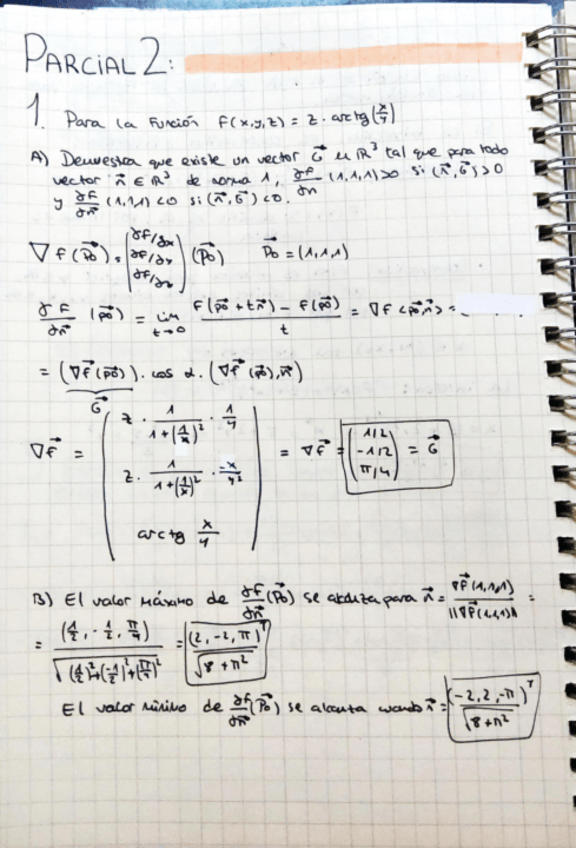 PARCIAL 2:
1. Para la función f(x,y,z) = z · arctg(x/y)
A) Demuestra que existe un vector G⃗ en R³ tal que para todo
vector n⃗ ∈ R³ de norma 1, ∂f/∂n (1,1,1)>0 si (n⃗,G⃗)>0
y ∂f/∂n⃗ (1,1,1)<0 si (n⃗,G⃗)<0.
∇f(p⃗o) = (∂f/∂x ∂f/∂y ∂f/∂z) (p⃗o) p⃗o = (1,1,1)
∂f/∂n⃗ (p⃗o) = lim t→0 f(p⃗o + tn⃗) - f(p⃗o) / t = ∇f <p⃗o,n⃗> =
= (∇f⃗(p⃗o)) · cos α · (∇f⃗(p⃗o),n⃗)
G⃗
∇f⃗ = ( z · 1/(1+(1/x)²) · 1/y
z · 1/(1+(1/x)²) · -x/y²
arctg x/y ) = ∇f⃗ = (1/2 -1/2 π/4) = G⃗
B) El valor máximo de ∂f/∂n⃗ (p⃗o) se alcanza para n⃗ = ∇f⃗(1,1,1) / ||∇f⃗(1,1,1)|| =
= (1/2, -1/2, π/4) / √((1/2)²+(-1/2)²+(π/4)²) = (2,-2,π)ᵀ / √(8+π²)
El valor mínimo de ∂f/∂n⃗ (p⃗o) se alcanza cuando n⃗ = (-2,2,-π)ᵀ / √(8+π²)